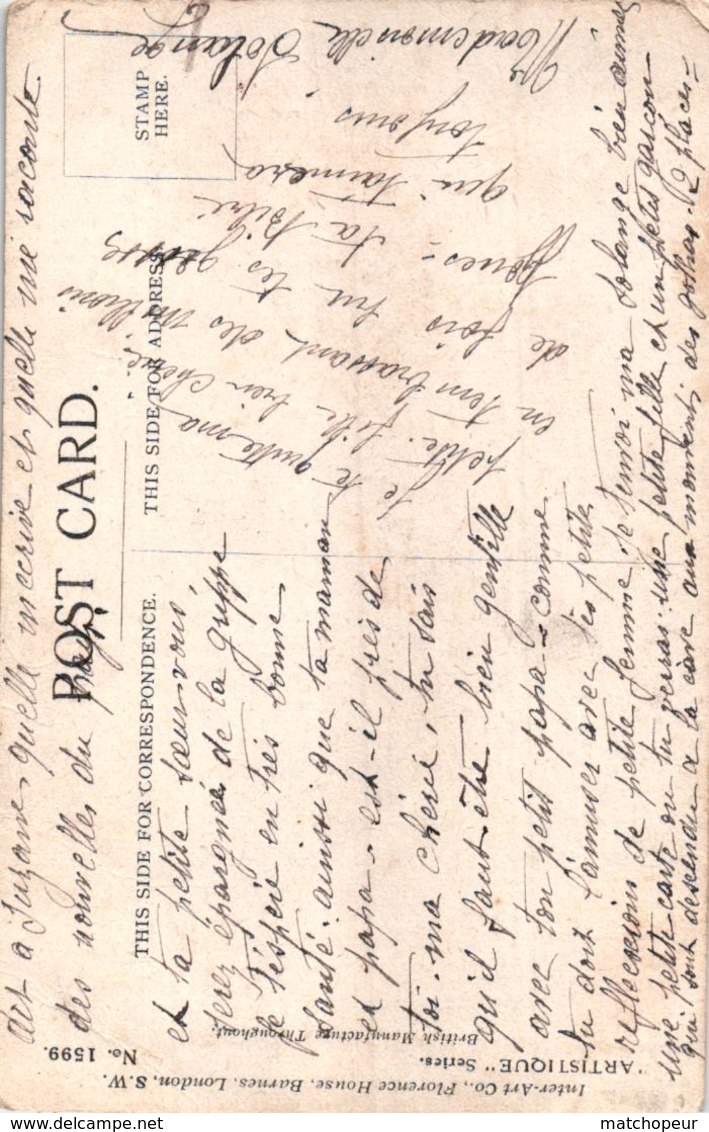 Mademoiselle Solange
et ta petite sœur vous
serez épargnée de la grippe
je t'espère en très bonne
santé. ainsi que ta maman
et papa - est-il près de
toi. ma chérie, tu sais
qu'il faut être bien gentille
avec ton petit papa - comme
tu dois l'amuser avec tes petite
reflexions de petite femme je t'envoi ma Solange bien aimée
une petite carte ou tu verras une petite fille et un petit garçon
qui sont descendu a la cave aux moments des gothas. 12 places -
Je quitte ma
petite fille bien chérie
en t'embrassant des millions
de fois sur tes grosses
joues - ta
qui t'aimera
toujours
dit a Suzanne quelle m'écrive et quelle me raconte
des nouvelles du
POST CARD.
STAMP
HERE.
THIS SIDE FOR CORRESPONDENCE.
THIS SIDE FOR ADDRESS
Inter-Art Co., Florence House, Barnes, London, S.W.
"ARTISTIQUE" Series.
No. 1599.
British Manufacture Throughout.
matchopeur